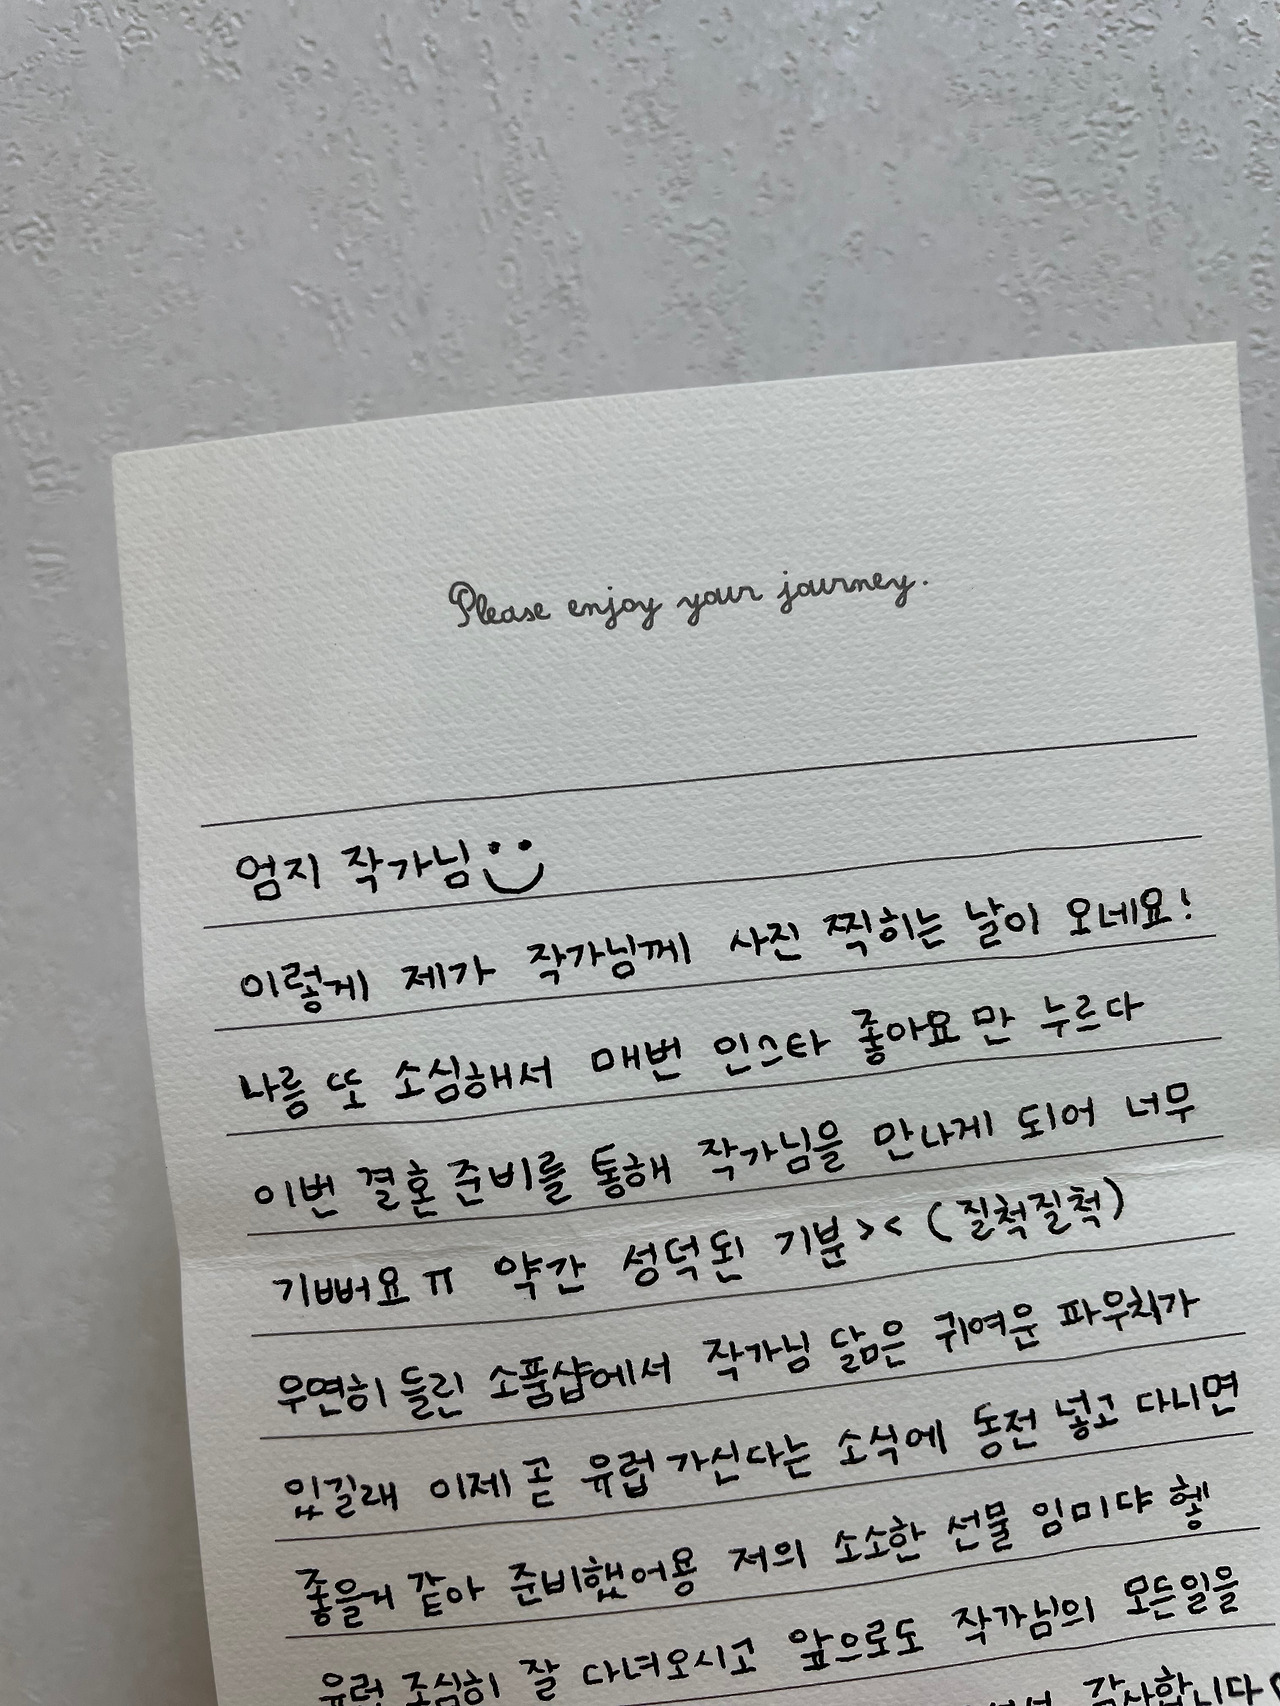 Please enjoy your journey.
엄지 작가님
이렇게 제가 작가님께 사진 찍히는 날이 오네요!
나름 또 소심해서 매번 인스타 좋아요만 누르다
이번 결혼준비를 통해 작가님을 만나게 되어 너무
기뻐요ㅠ 약간 성덕된 기분>< (질척질척)
우연히 들린 소품샵에서 작가님 닮은 귀여운 파우치가
있길래 이제 곧 유럽가신다는 소식에 동전 넣고 다니면
좋을거 같아 준비했어용 저의 소소한 선물 임미댜 헿
유럽 조심히 잘 다녀오시고 앞으로도 작가님의 모든일을
감사합니다